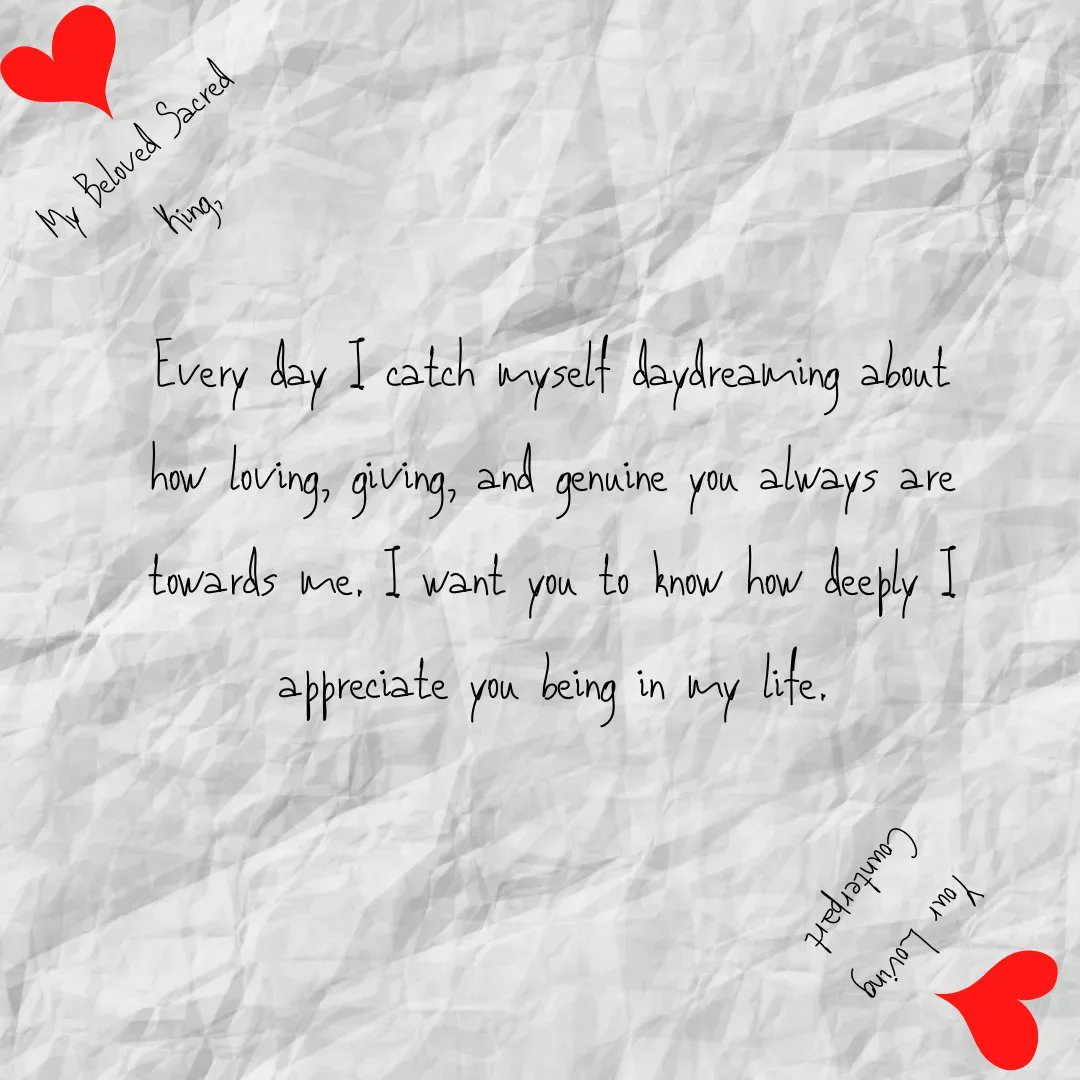 My Beloved Sacred
King,
Every day I catch myself daydreaming about
how loving, giving, and genuine you always are
towards me. I want you to know how deeply I
appreciate you being in my life.
Your Loving
Counterpart